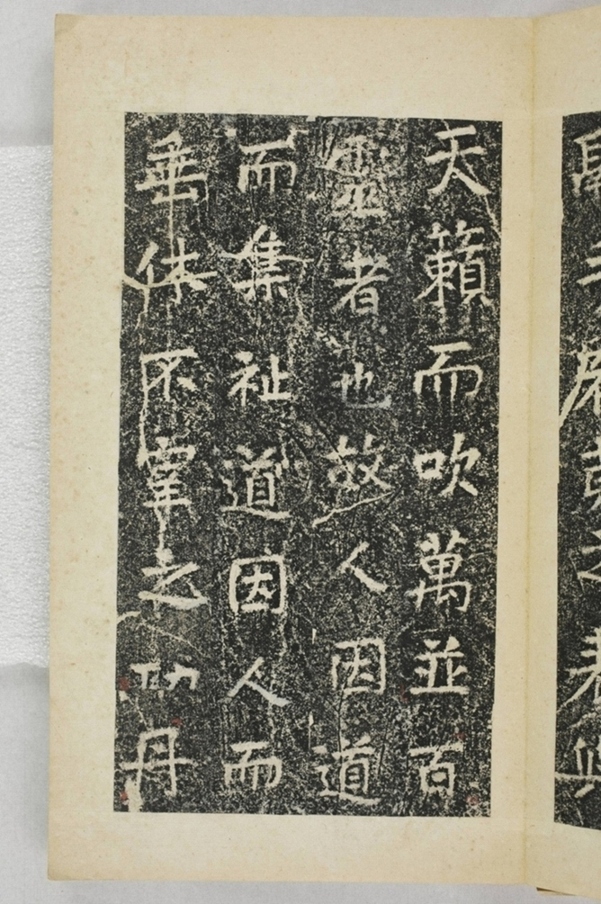 天籟而吹萬並百
靈者也故人因道
而集祉道因人而
垂休不宰之功丹